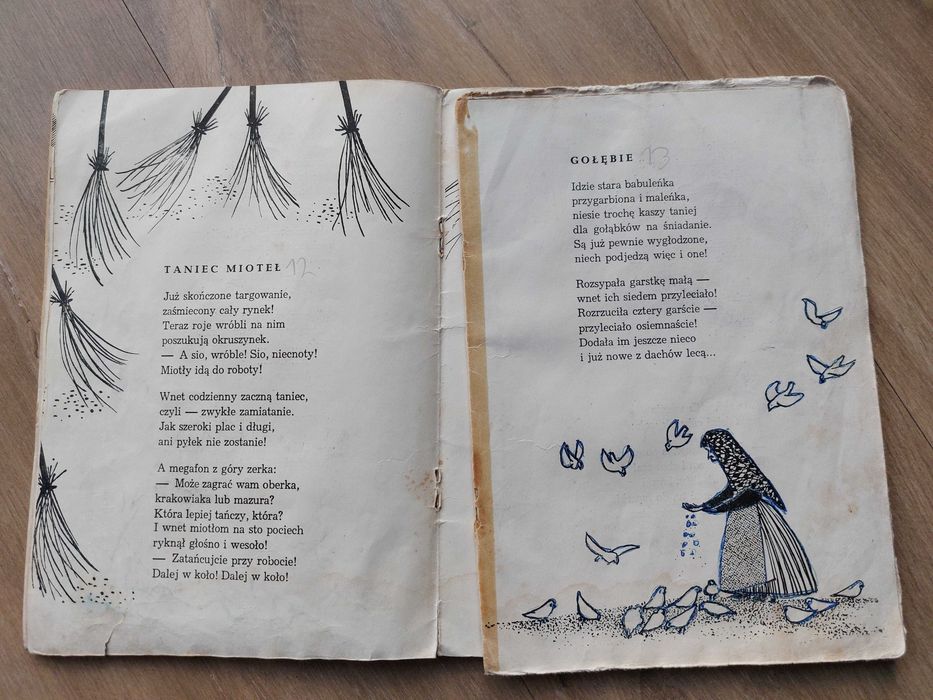 TANIEC MIOTEŁ 12.
Już skończone targowanie,
zaśmiecony cały rynek!
Teraz roje wróbli na nim
poszukują okruszynek.
— A sio, wróble! Sio, niecnoty!
Miotły idą do roboty!
Wnet codzienny zaczną taniec,
czyli — zwykłe zamiatanie.
Jak szeroki plac i długi,
ani pyłek nie zostanie!
A megafon z góry zerka:
— Może zagrać wam oberka,
krakowiaka lub mazura?
Która lepiej tańczy, która?
I wnet miotłom na sto pociech
ryknął głośno i wesoło!
— Zatańcujcie przy robocie!
Dalej w koło! Dalej w koło!
GOŁĘBIE 13
Idzie stara babuleńka
przygarbiona i maleńka,
niesie trochę kaszy taniej
dla gołąbków na śniadanie.
Są już pewnie wygłodzone,
niech podjedzą więc i one!
Rozsypała garstkę małą —
wnet ich siedem przyleciało!
Rozrzuciła cztery garście —
przyleciało osiemnaście!
Dodała im jeszcze nieco
i już nowe z dachów lecą...